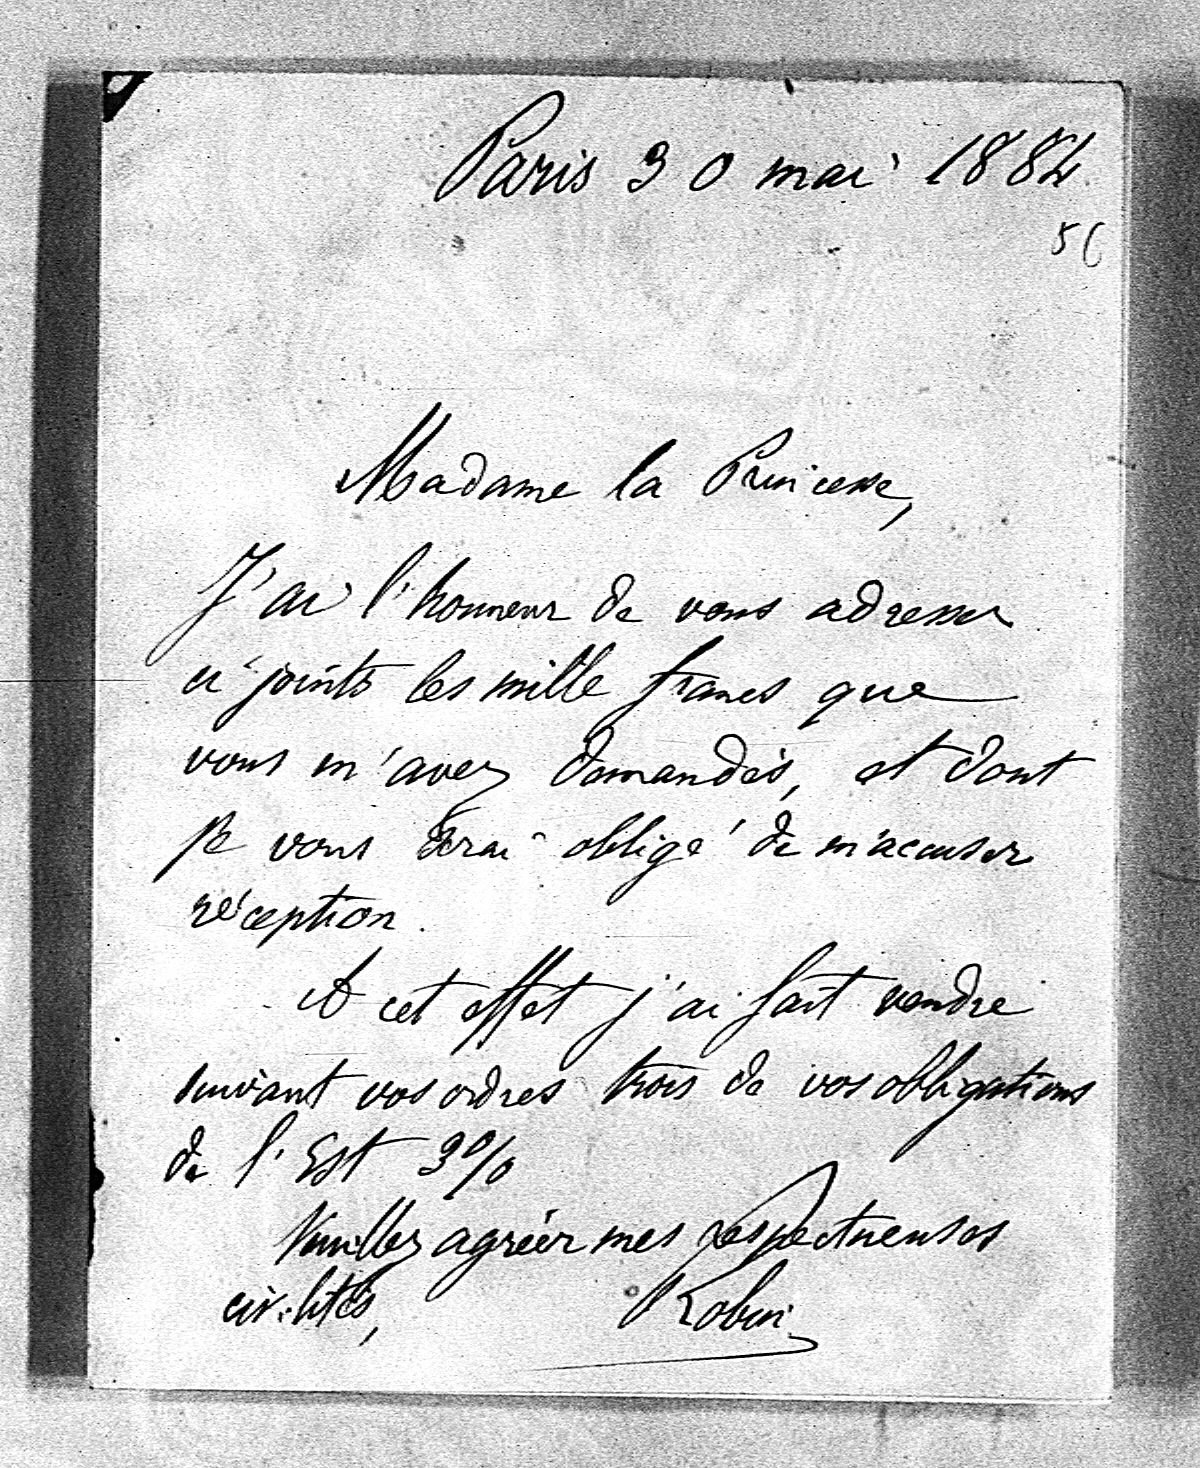 Paris 30 mai 1884
56
Madame la Princesse,
J'ai l'honneur de vous adresser
ci-joints les mille francs que
vous m'avez demandés, et dont
je vous serai obligé de m'accuser
réception.
A cet effet j'ai fait vendre
suivant vos ordres trois de vos obligations
de l'Est 3%
Veuillez agréer mes respectueuses
civilités,
Robin